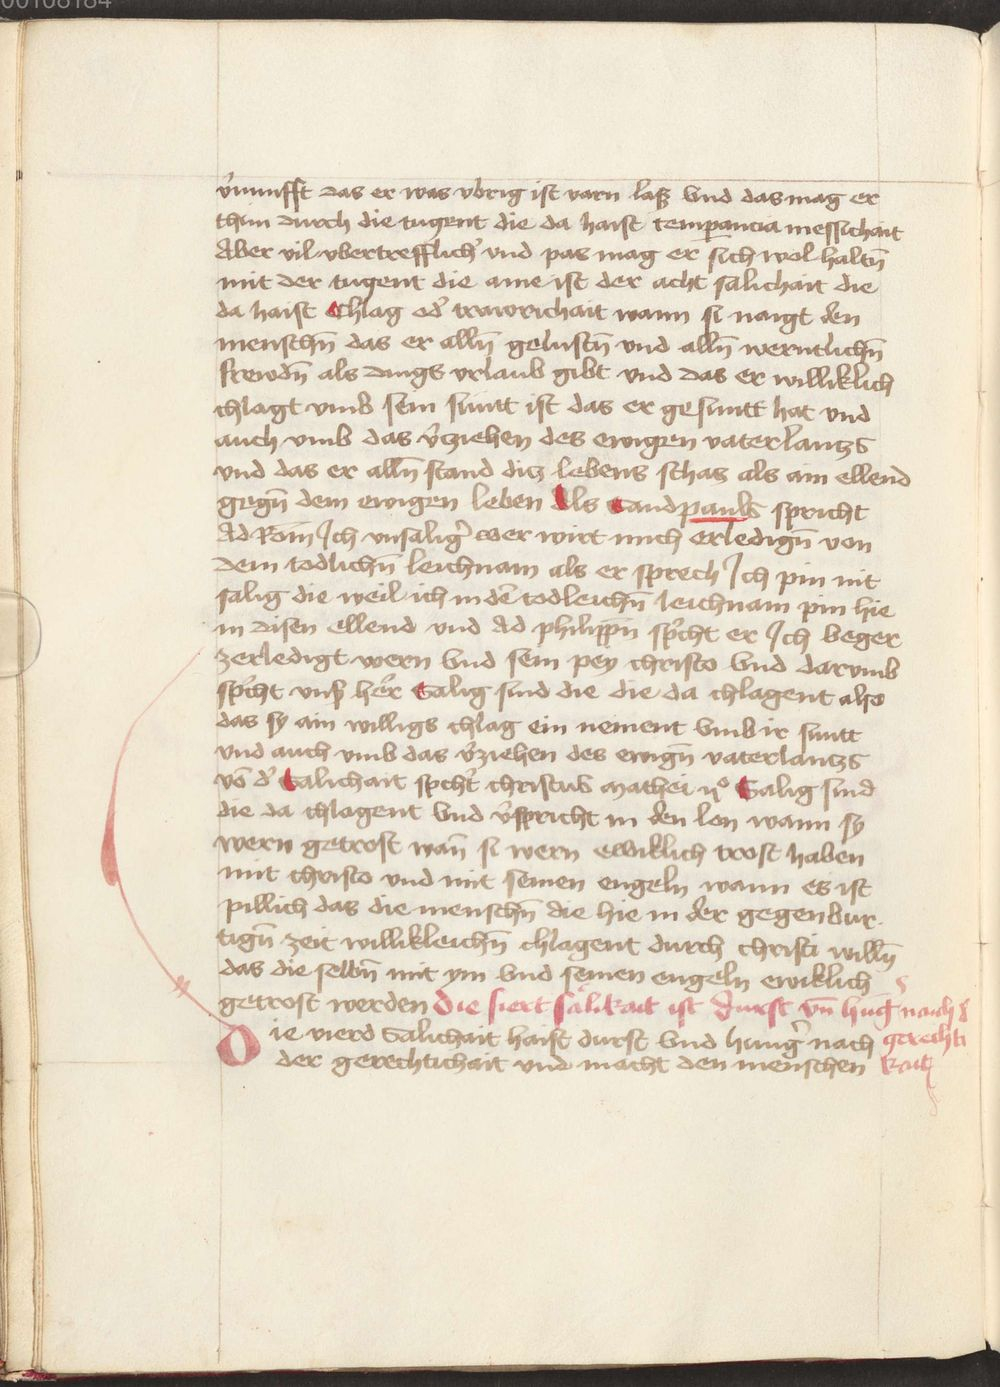 00108184
v̓nunfft das er was vbrig ist varn laß Vnd das mag er
thun durch die tugent die da haist temperancia messichait
Aber vil vbertrefflich̓ vnd pas mag er sich wol haltn̄
mit der tugent die aine ist der acht salichait die
da haist Chlag od̓ trawrichait wann si naigt den
menschn̄ das er alln̄ gelustn̄ vnd alln̄ werntlichn̄
frewdn̄ als dings vrlaub gibt vnd das er williklich
chlagt vmb sein sunt ist das er gesuntt hat vnd
auch vmb das v̓ziehen des ewigen vaterlantzs
vnd das er alln̄ stand ditz lebens schas als ain ellend
gegn̄ dem ewigen leben Als Sand pauls spricht
Ad Rom̄ Ich vnsalig̓ wer wirt mich erledign̄ von
dem todlichn̄ leichnam als er sprech Ich pin nit
salig die weil ich in dē todleichn̄ leichnam pin hie
in disen ellend vnd Ad philippn̄ sp̓cht er Ich beger
zerledigt wern Vnd sein pey christo Vnd darvmb
sp̓cht vns̓ her̓ Salig sind die die da chlagent also
das sy ain willigs chlag ein nement Vmb ir suntt
vnd auch vmb das v̓ziehen des ewign̄ vaterlantzs
vō d̓ Salichait spcht̓ christus Mathei v̊ Salig sind
die da chlagent Vnd v̓spricht in den lon wann sy
wern getrost wan̄ si wern ewiklich trost haben
mit christo vnd mit seinen engeln wann es ist
pillich das die menschn̄ die hie in der gegenbur
tign̄ zeit willikleichn̄ chlagent durch christi willn̄
das die selbn̄ mit ym Vnd seinen engeln ewiklich
getrost werden Die fiert sälikait ist Durst vn̄ hung̓ nach d̓
gerechti
kait
Die vierd Salichait haist durst Vnd hung̓ nach
der gerechtichait vnd macht den menschen